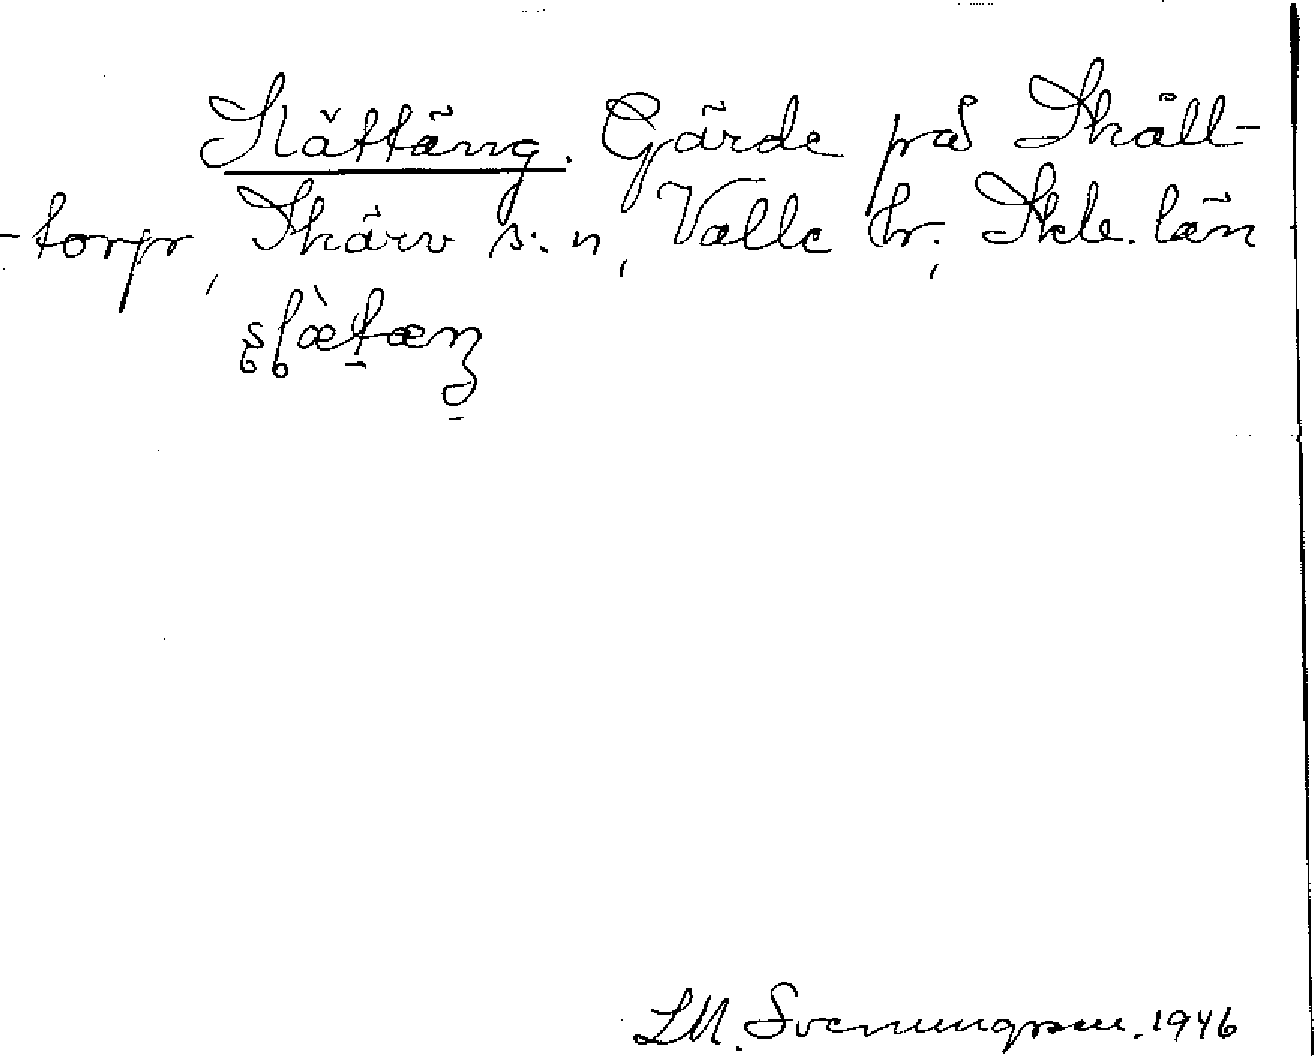 Slättäng. Gärde på Skält-
-torp, Skärv s:n, Valle hr., Skb. län
L.M. Svenungsson. 1946